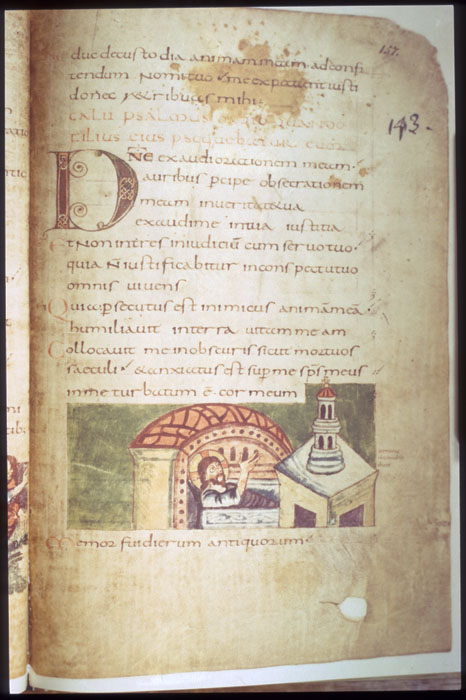 157.
143.
educ decustodia animam meam adconfi
tendum Nomi tuo me expectant iusti
donec retribuas mihi
PSALMUS
filius eius persequebatur eum
DNE exaudi orationem meam
auribus percipe obsecrationem
meam inveritate tua
exaudi me intua iustitia
Et Non intres iniudiciu cum servo tuo
quia N iustificabitur inconspectu tuo
omnis vivens
Quia persecutus est inimicus animam mea
humiliavit interra vitam meam
Collocavit me inobscuris sicut mortuos
saeculi & anxiatus est super me sps meus
inme turbatum e cor meum
Memor fui dierum antiquorum